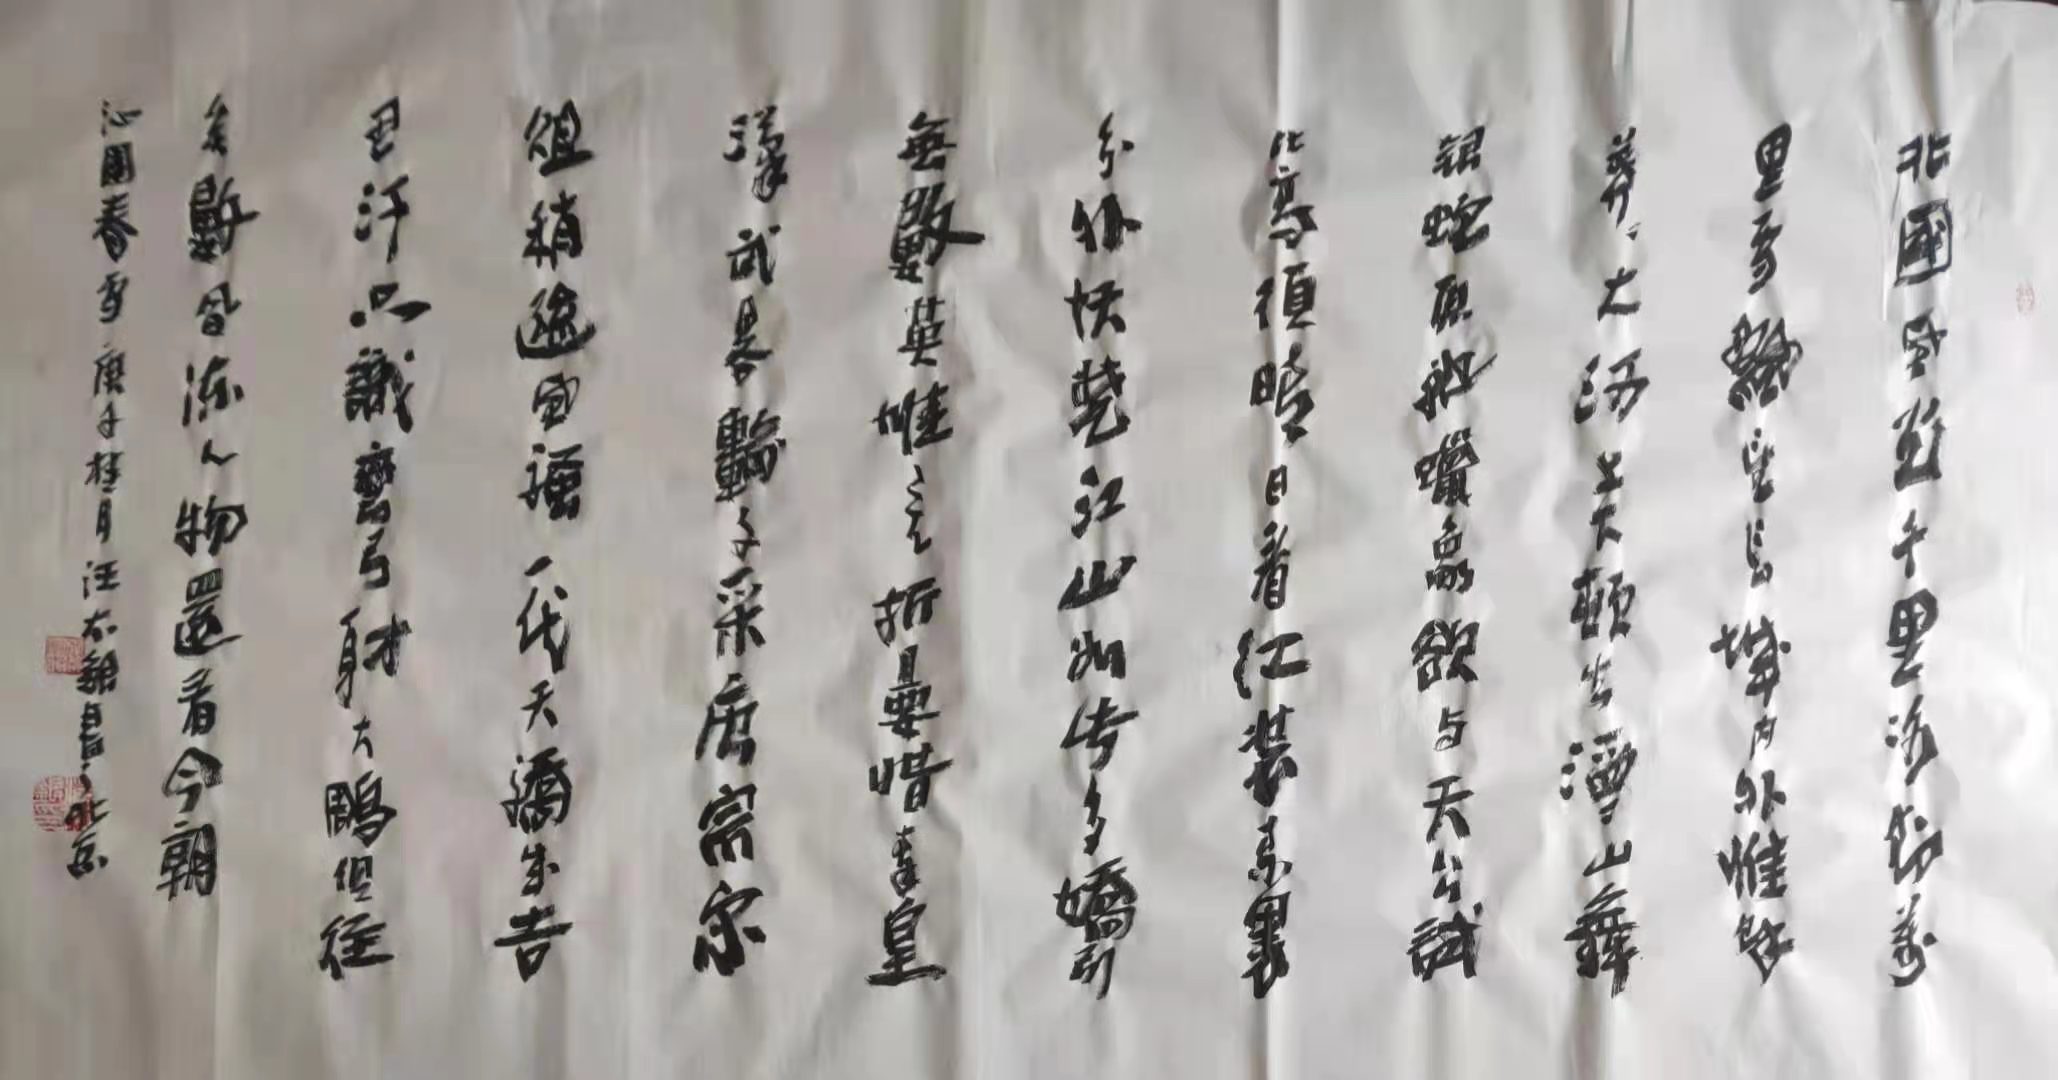 北國風光千里冰封萬
里雪飄望長城内外惟餘
莽〻大河上下頓失滔滔山舞
銀蛇原馳蠟象欲与天公試
比高須晴日看红装素裹
分外妖嬈江山如此多嬌引
無數英雄競折腰惜秦皇
漢武略輸文采唐宗宋
祖稍遜風騷一代天驕成吉
思汗只識彎弓射大鵰俱往
矣數風流人物還看今朝
沁園春雪庚子桂月汪太